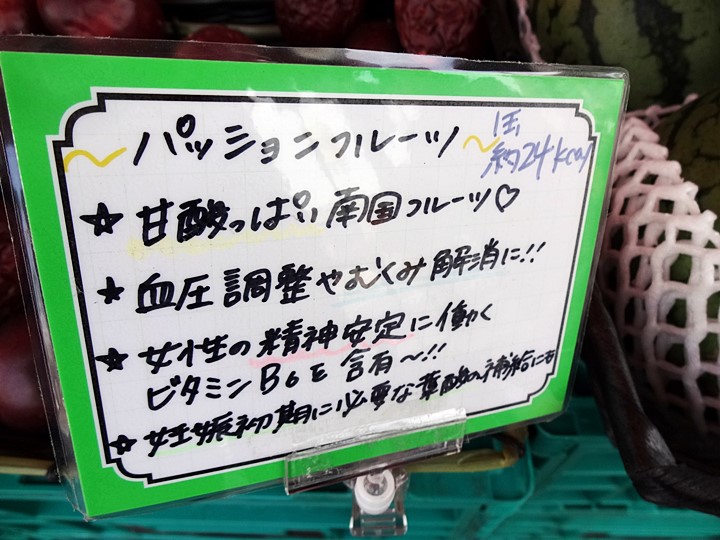 ~パッションフルーツ~
1玉
約24kcal
☆ 甘酸っぱい南国フルーツ♡
☆ 血圧調整やむくみ解消に!!
☆ 女性の精神安定に働く
ビタミンB6を含有~!!
☆ 妊娠初期に必要な葉酸の補給にも